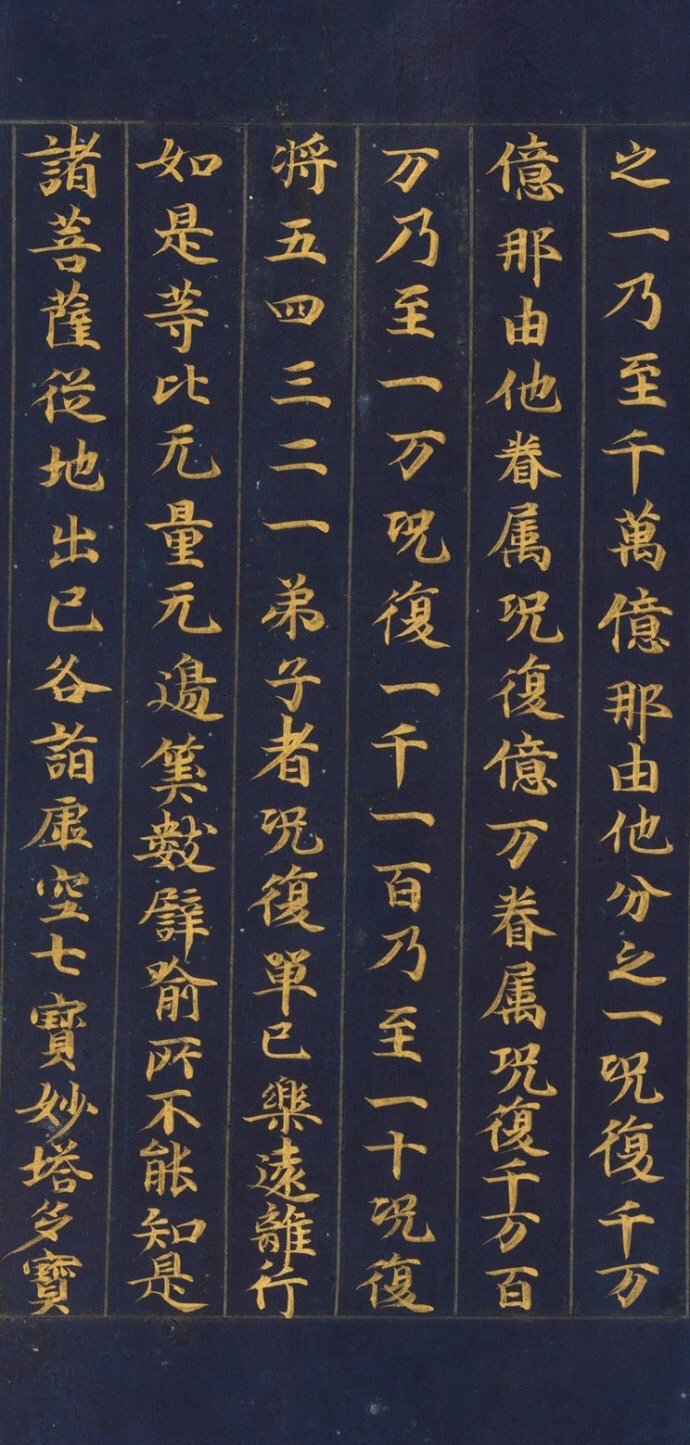 之一乃至千萬億那由他分之一况復千万
億那由他眷属况復億万眷属况復千万百
万乃至一万况復一千一百乃至一十况復
将五四三二一弟子者况復單已樂遠離行
如是等比无量无邊筭數譬喻所不能知是
諸菩薩從地出已各詣虚空七寶妙塔多寶